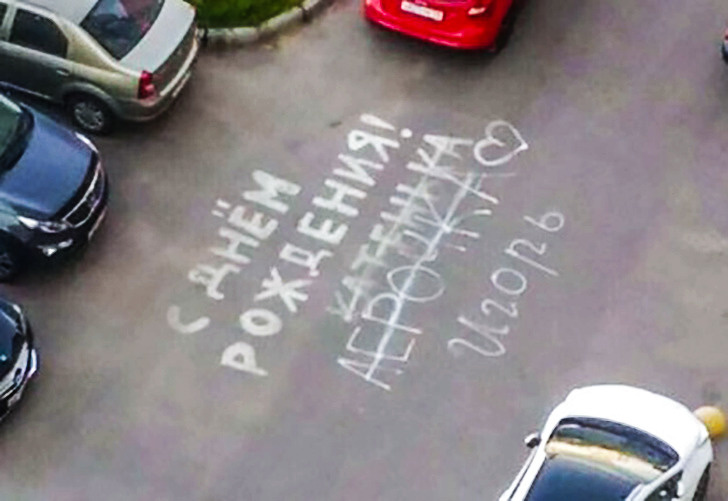 С ДНЁМ
РОЖДЕНИЯ!
КАТЕНЬКА
ЛЕРОЧКА
Игорь